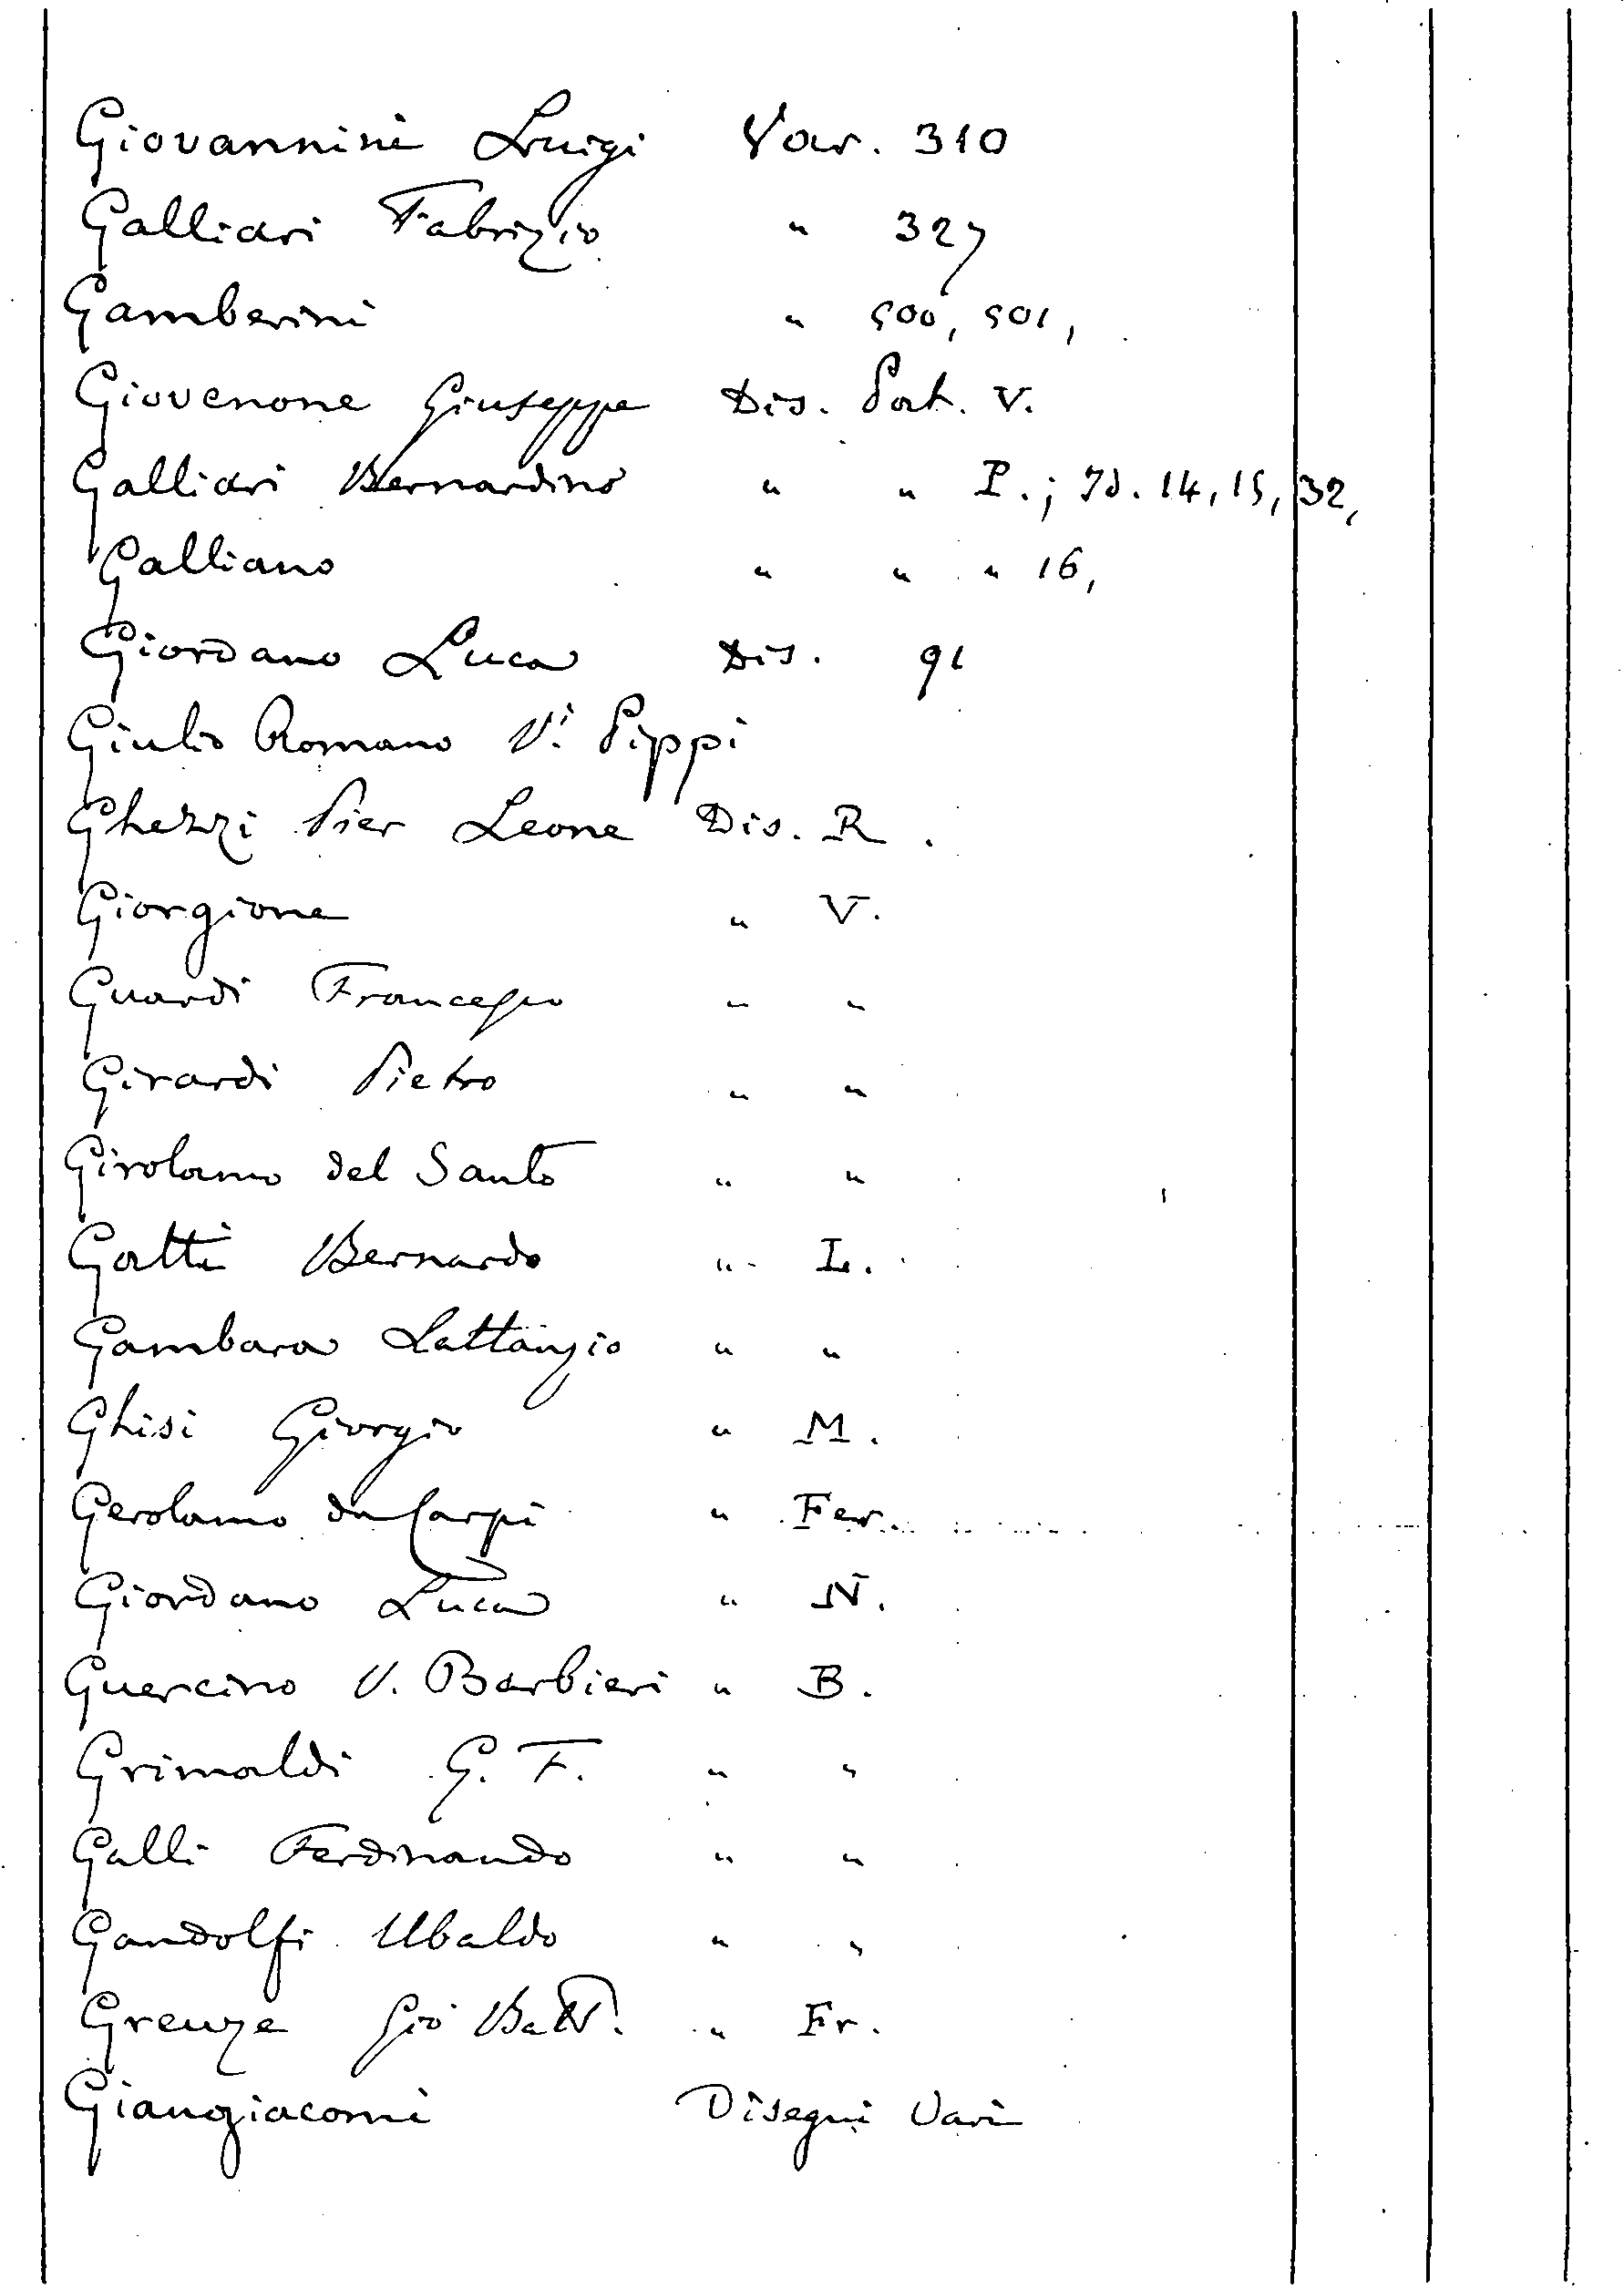 Giovannini Luigi Var. 310
Galliari Fabrizio " 327
Gamberini " 500, 501,
Giovenone Giuseppe Dis. Pat. V.
Galliari Bernardino " " P.; Id. 14, 15, 32,
Galliano " " " 16,
Giordano Luca Dis. 91
Giulio Romano Vi. Pippi
Ghezzi Pier Leone Dis. R.
Giorgione " V.
Guardi Francesco " "
Girardi Pietro " "
Girolamo del Santo " "
Gatti Bernardo " L.
Gambara Lattanzio " "
Ghisi Giorgio " M.
Gerolamo da Carpi " Fer.
Giordano Luca " N.
Guercino V. Barbieri " B.
Grimaldi G. F. " "
Galli Ferdinando " "
Gandolfi Ubaldo " "
Greuze Gio Batt. " Fr.
Giangiacomi Disegni Vari